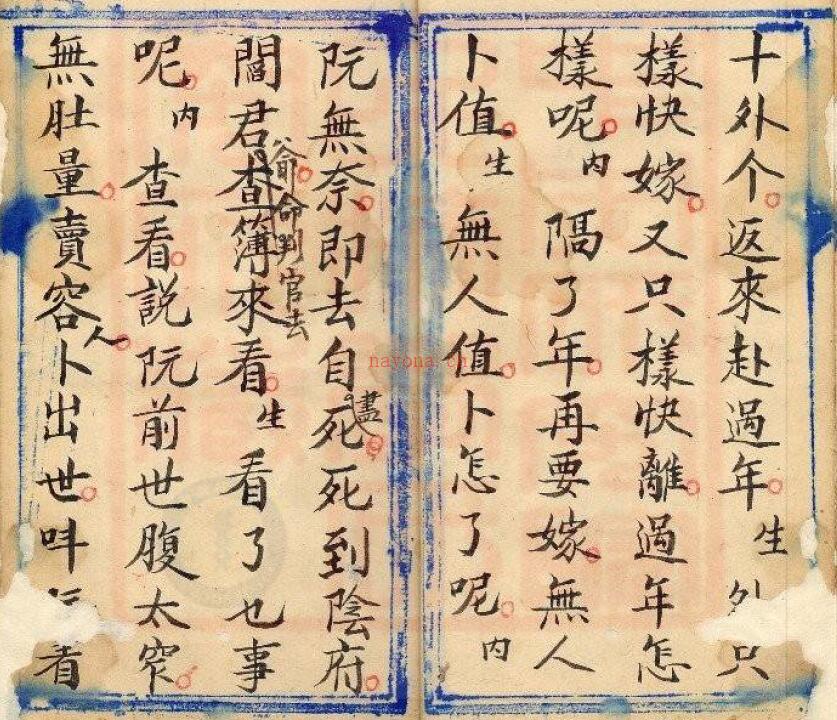 十外个返來赴過年生外只
樣快嫁又只樣快離過年怎
樣呢内隔了年再要嫁無人
卜值生無人值卜怎了呢内
阮無奈即去自死死到陰府
盡
閻君查簿來看生看了乜事
爺命判官去
呢内查看説阮前世腹太窄
無肚量賣容人卜出世呌 着
nayona.cn